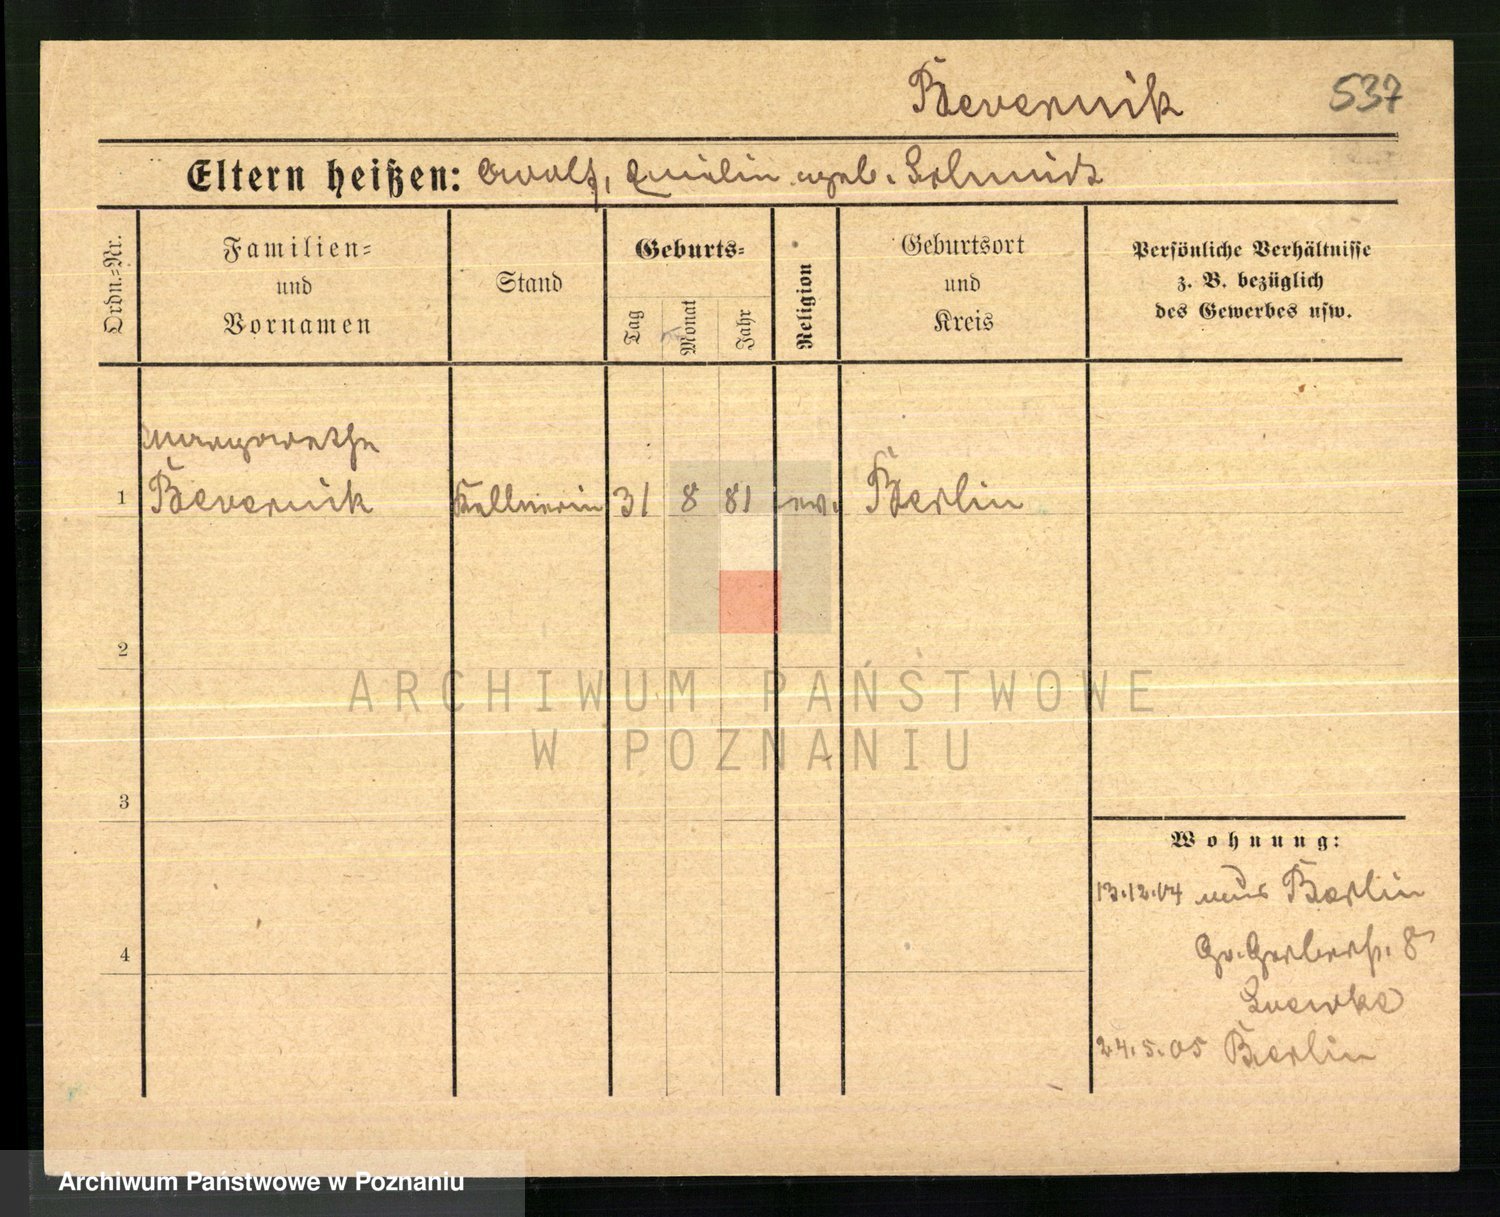 Bevernik 537
Eltern heißen: Adolf, Emilie geb. Schmidt
Ordn.=Nr.
Familien=
und
Vornamen
Stand
Geburts=
Tag
Monat
Jahr
Religion
Geburtsort
und
Kreis
Persönliche Verhältnisse
z. B. bezüglich
des Gewerbes usw.
Margarethe
1 Bevernik Kellnerin 31 8 81 ev. Berlin
2
ARCHIWUM PAŃSTWOWE
W POZNANIU
3
Wohnung:
13.12.04 aus Berlin
Gr. Gerberstr. 8
4
24.5.05 Berlin
Archiwum Państwowe w Poznaniu